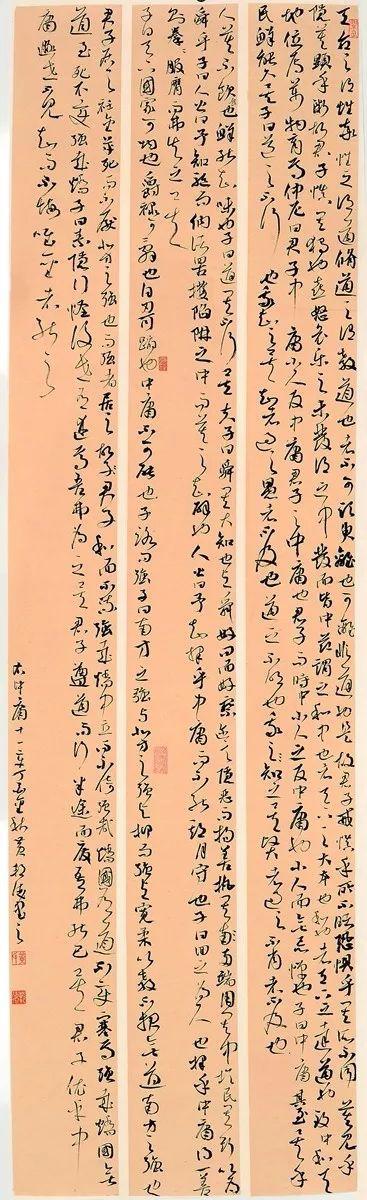 天命之謂性率性之謂道修道之謂教道也者不可須臾離也可離非道也是故君子戒慎乎其所不睹恐懼乎其所不聞莫見乎
隱莫顯乎微故君子慎其獨也喜怒哀樂之未發謂之中發而皆中節謂之和中也者天下之大本也和也者天下之達道也致中和天
地位焉萬物育焉仲尼曰君子中庸小人反中庸君子之中庸也君子而時中小人之反中庸也小人而無忌憚也子曰中庸其至矣乎
民鮮能久矣子曰道之不行也我知之矣知者過之愚者不及也道之不明也我知之矣賢者過之不肖者不及也
人莫不飲食也鮮能知味也子曰道其不行矣夫子曰舜其大知也與舜好問而好察邇言隱惡而揚善執其兩端用其中於民其斯以為
舜乎子曰人皆曰予知驅而納諸罟擭陷阱之中而莫之知辟也人皆曰予知擇乎中庸而不能期月守也子曰回之為人也擇乎中庸得一善
拳拳服膺而弗失之矣
子曰天下國家可均也爵祿可辭也白刃可蹈也中庸不可能也子路問強子曰南方之強與北方之強與抑而強與寬柔以教不報無道南方之強也
君子居之衽金革死而不厭北方之強也而強者居之故君子和而不流強哉矯中立而不倚強哉矯國有道不變塞焉強哉矯國無
道至死不變強哉矯子曰素隱行怪後世有述焉吾弗為之矣君子遵道而行半途而廢吾弗能已矣君子依乎中
庸遯世不見知而不悔唯聖者能之
右中庸十一章丁酉 秋黃 書之